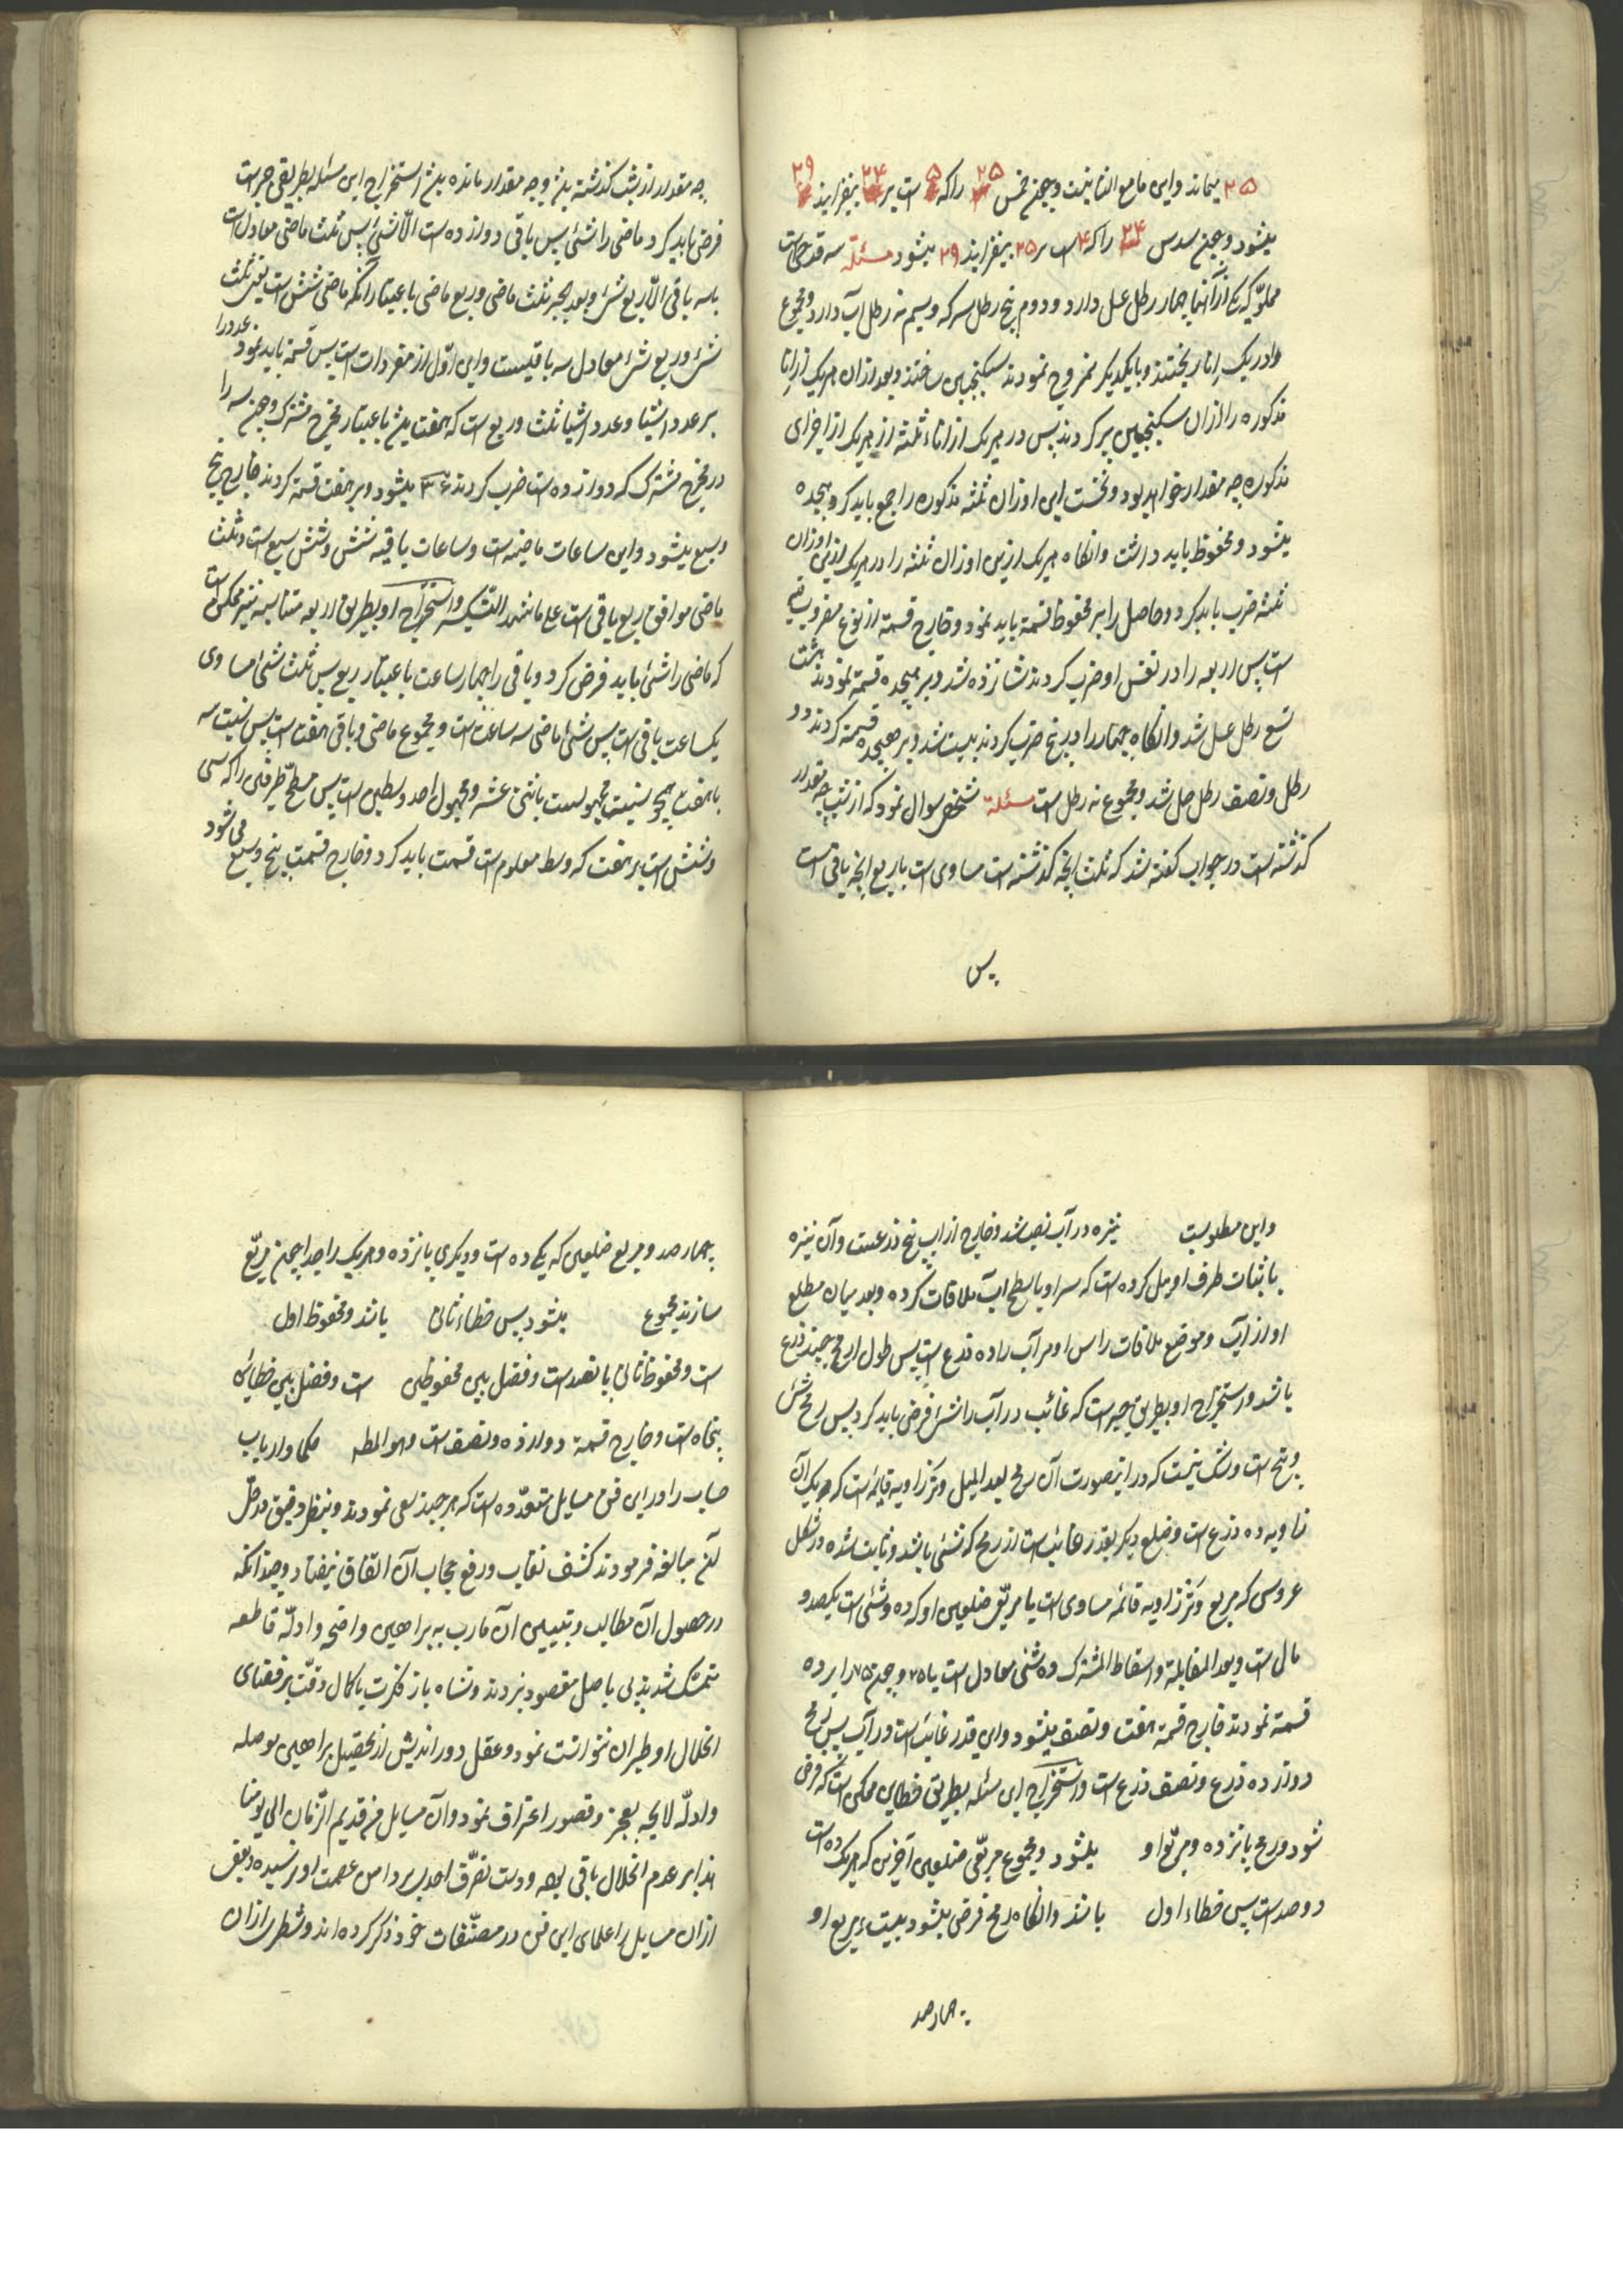 ۲۵ میماند و این ما مع الثانیست و چون خمس ۲۵ را که ۵ است بر ۲۴ بیفزایند ۲۹
میشود و چون سدس ۲۴ را که ۴ است بر ۲۵ بیفزایند ۲۹ میشود مسئلة سه قدح است
مملو که یکی از آنها چهار رطل عسل دارد و دوم پنج رطل سرکه و سیم نه رطل آب دارد و مجموع
را در یک اناء ریختند و با یکدیگر ممزوج نمودند سکنجبین ساختند و بعد از ان هر یک از انا
مذکوره را از ان سکنجبین پر کردند پس در هر یک از اناء ثلثه از هر یک از اجزای
مذکوره چه مقدار خواهد بود و نخست این اوزان ثلثه مذکوره را جمع باید کرد هیجده
میشود و محفوظ باید داشت و انکاه هر یک ازین اوزان ثلثه را در هر یک ازین اوزان
ثلثه ضرب باید کرد و حاصل را بر محفوظ قسمة باید نمود و خارج قسمة از نوع مضروب فیه
است پس اربعه را در نفس او ضرب کردند شانزده شد و بر هیجده قسمة نمودند هشت
تسع رطل عسل شد و انکاه چهار را در پنج ضرب کردند بیست شد و بر هیجده قسمة کردند دو
رطل و نصف رطل حل شد و مجموع نه رطل است مسئلة شخصی سوال نمود که از شب چه مقدار
کذشته است در جواب کفته شد که ثلث انچه کذشته است مساوی است با ربع انچه باقی است
پس
چه مقدار از شب کذشته بود و چه مقدار مانده بود استخراج این مسئله بطریق جبر است
فرض باید کرد ماضی را شئ پس باقی دوازده است الا شئ پس ثلث ماضی معادل است
با سه باقی الا ربع شئ و بعد الجبر ثلث ماضی و ربع ماضی باعتبار آنکه ماضی شئ است یعنی ثلث
شئ و ربع شئ معادل سه باقیست و این اول از مفردات است پس قسمة باید نمود عدد را
بر عدد اشیا و عدد اشیا ثلث و ربع است که هفت میشود باعتبار مخرج مشترک و چون سه را
در مخرج مشترک که دوازده است ضرب کردند ۳۶ میشود و بر هفت قسمة کردند خارج پنج
و سبع میشود و این ساعات ماضیه است و ساعات باقیه شش و شش سبع است و ثلث
ماضی موافق ربع باقی است و استخراج او بطریق اربعه متناسبه نیز ممکن است
که ماضی را شئ باید فرض کرد و باقی را چهار ساعت باعتبار ربع پس ثلث شئ مساوی
یکساعت باقی است پس شئ ماضی سه ساعت است و مجموع ماضی و باقی هفت است پس نسبت سه
با هفت همچو نسبت مجهولست باثنی عشر و مجهول احد وسطین است پس مسطح طرفین را که سی
و شش است بر هفت که وسط معلوم است قسمت باید کرد و خارج قسمت پنج و سبع می شود
و این مطلوبست نیزه در آب نصب شد و خارج از اب پنج ذرعست و آن نیزه
با ثبات طرف او میل کرده است که سر او با سطح آب ملاقات کرده و بعد میان مطلع
او از آب و موضع ملاقات راس او مر آب را ده ذرع است پس طول این رمح چند ذرع
باشد و استخراج او بطریق جبر است که غائب در آب را شئ فرض باید کرد پس رمح شئ
و پنج است و شک نیست که در اینصورت آن رمح بعد المیل وتر زاویه قایمه است که هر یک آن
زاویه ده ذرع است و ضلع دیکر بقدر غائب است از رمح که شئ باشد و ثابت شده در شکل
عروسی که مربع وتر زاویه قائمه مساوی است با مربع ضلعین او که ده و شئ است یکصد و
مال است و بعد المقابلة و اسقاط المشترک ده شئ معادل است با ۷۵ و چون ۷۵ را بر ده
قسمة نمودند خارج قسمة هفت و نصف میشود و این قدر غائب است در آب پس رمح
دوازده ذرع و نصف ذرع است و استخراج این مسئله بطریق خطاین ممکن است که فرض
شود رمح پانزده و مربع او میشود و مجموع مربعی ضلعین آخرین که هر یک ده است
دو صد است پس خطاء اول باشد و انکاه رمح فرض میشود بیست و مربع او
چهار صد
چهار صد و مربع ضلعین که یکی ده است و دیکری پانزده و هر یک را جدا چون مربع
سازند مجموع میشود پس خطاء ثانی باشد و محفوظ اول
است و محفوظ ثانی پانصد است و فضل بین محفوظین است و فضل بین خطائین
پنجاه است و خارج قسمة دوازده و نصف است و هو المط حکما و ارباب
حساب را در این فن مسایل متعدده است که هر چند سعی نمودند و بنظر دقیق در حل
آن مبالغه فرمودند کشف نقاب و رفع حجاب آن اتفاق نیفتاد و چندانکه
در حصول آن مطالب و تبیین آن مارب به براهین واضحه و ادله قاطعه
متمسک شدند پی باصل مقصود نبردند و شاه باز فکرت با کمال دقت بر فضای
انحلال او طیران نتوانست نمود و عقل دور اندیش از تحصیل براهین موصله
و ادله لایحه بعجز و قصور اعتراف نمود و آن مسایل من قدیم الزمان الی یومنا
هذا بر عدم انحلال باقی بوده و دست تصرف احدی بر دامن عصمت او نرسیده بعضی
از ان مسایل را علمای این فن در مصنفات خود ذکر کرده اند و شطری از ان